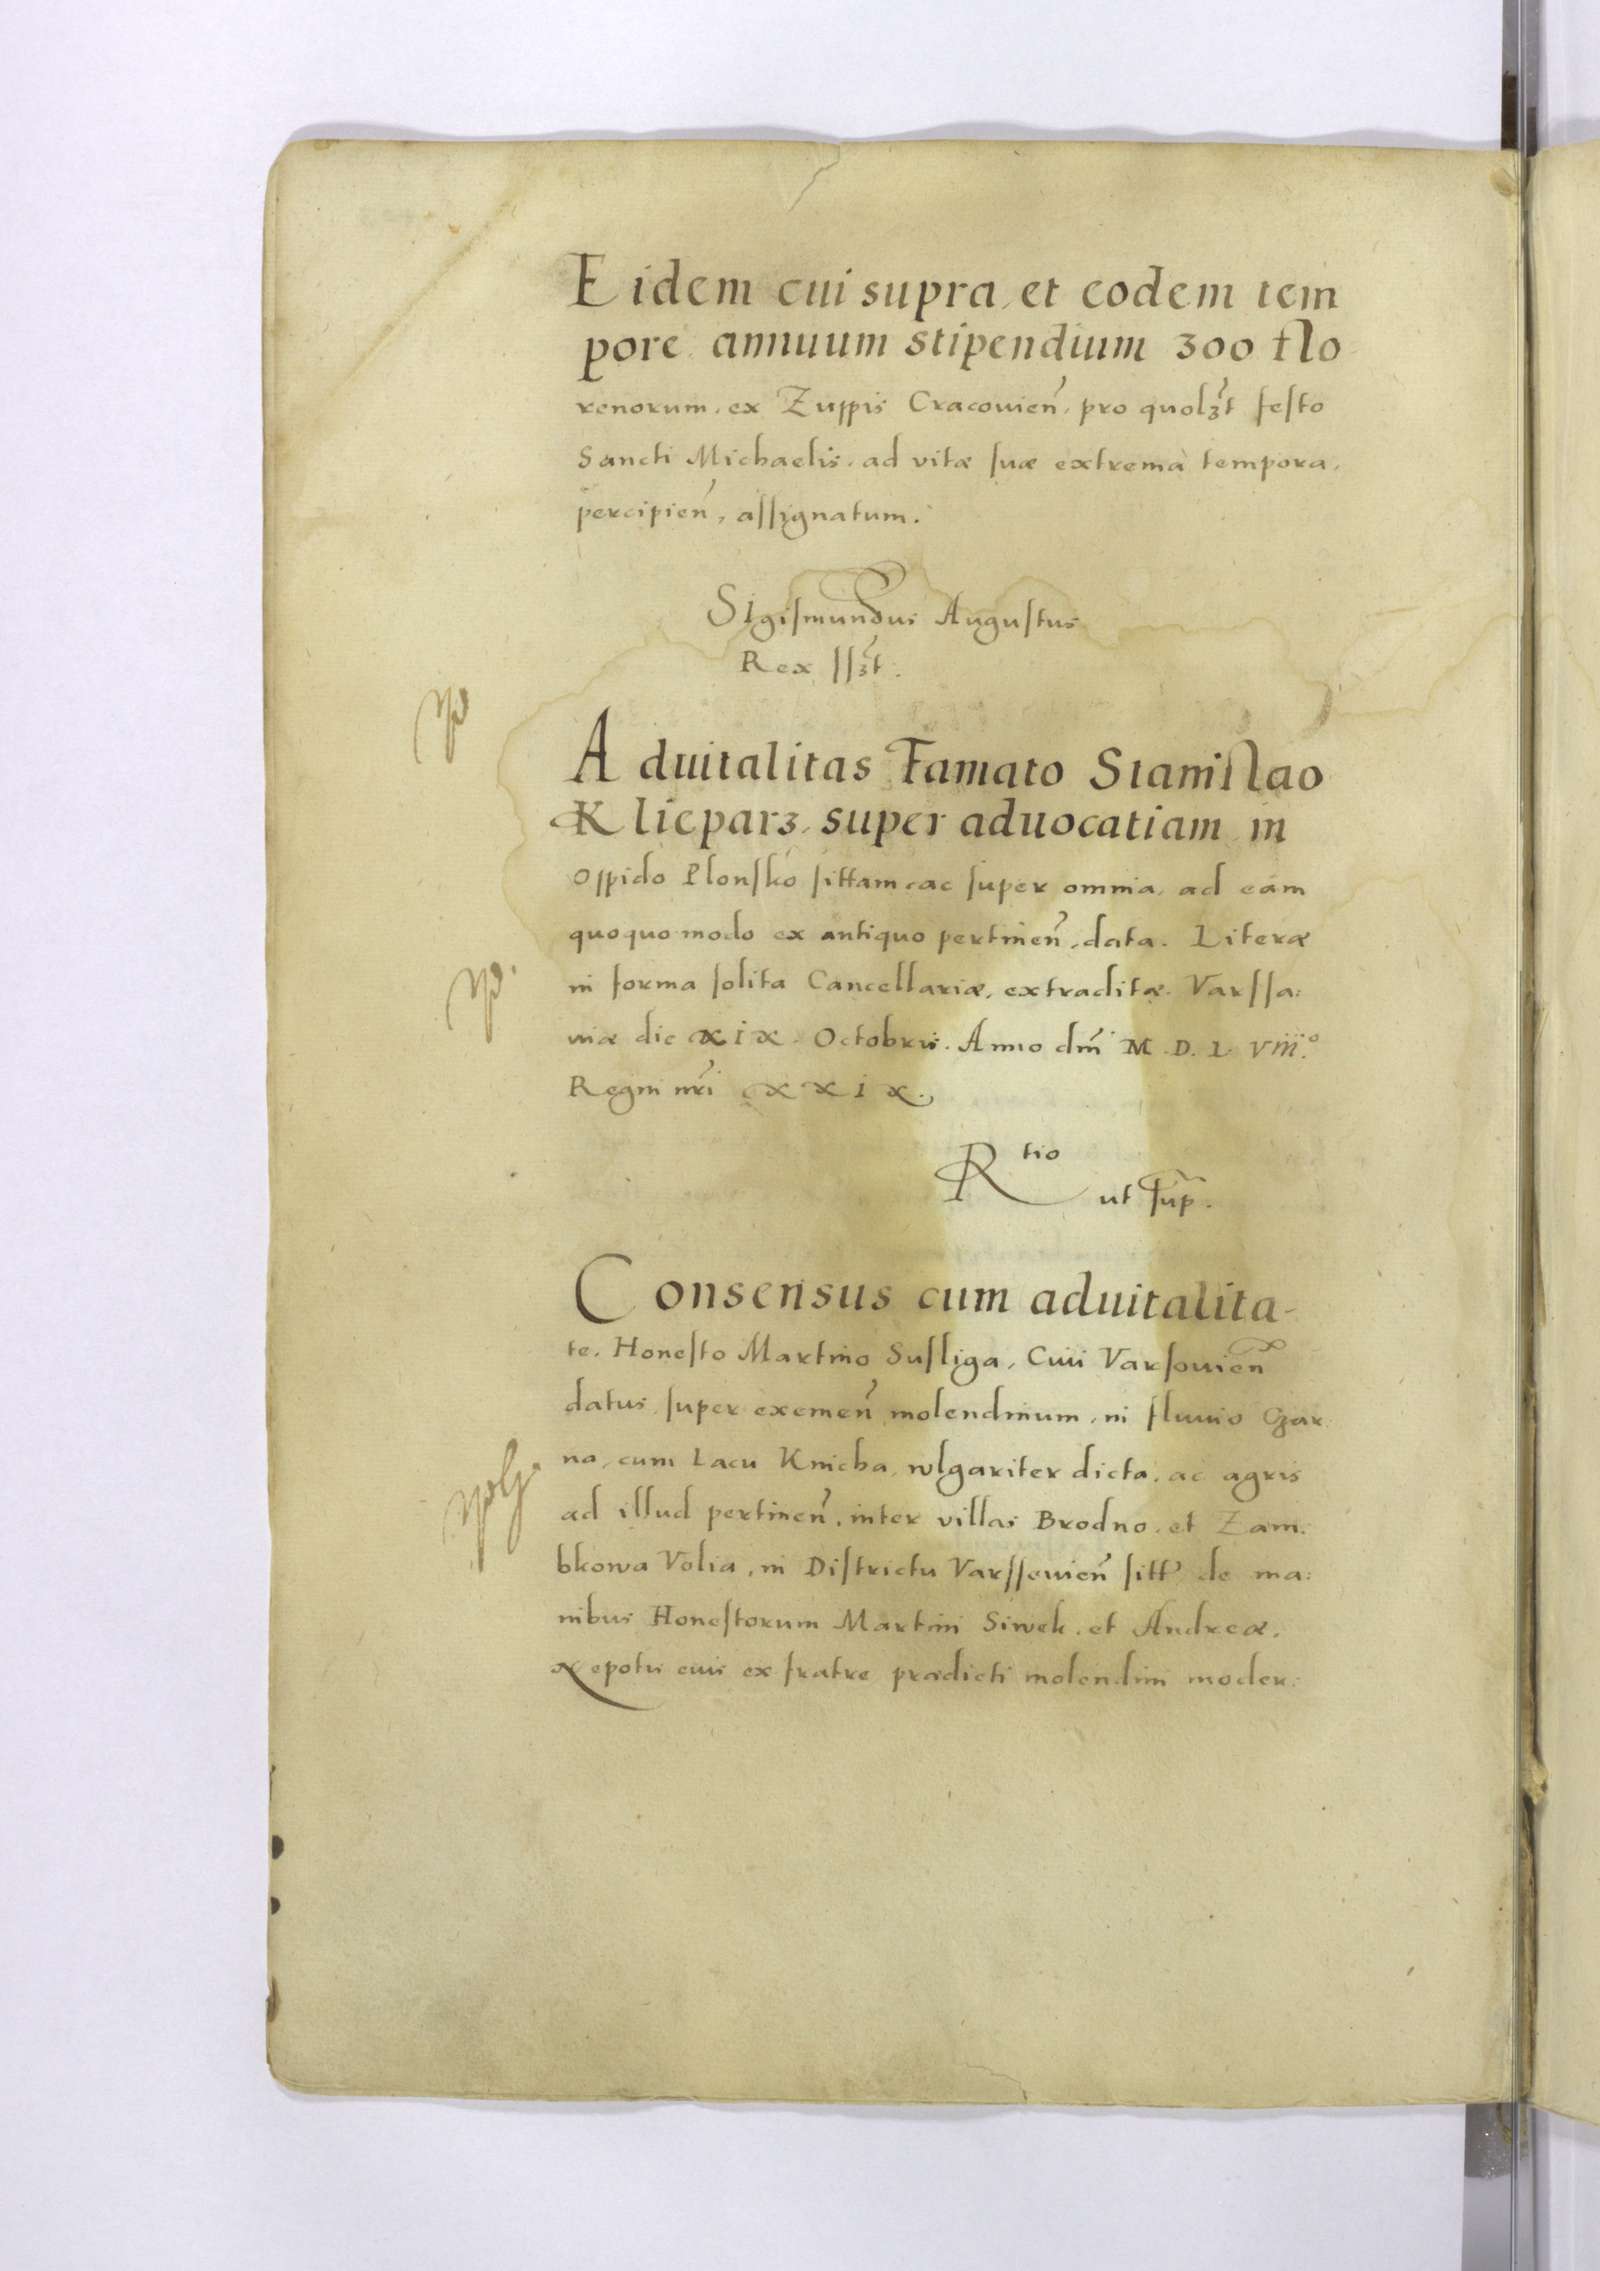 Eidem cui supra, et eodem tem
pore annuum stipendium 300 flo
renorum, ex Zuppis Cracouien̄, pro quolꝫt festo
Sancti Michaelis, ad vitæ suæ extrema tempora,
percipien̄, assignatum.
Sigismundus Augustus
Rex ssꝫt.
Aduitalitas Famato Stanislao
Klieparz, super aduocatiam in
Oppido Plonsko sittam eac super omnia, ad eam
quoquomodo ex antiquo pertinen̄, data. Literæ
in forma solita Cancellariæ, extraditæ. Varssa:
uiæ die XIX. Octobris. Anno dm̄ M.D.L.Viii.º
Regni nr̄i XXIX.
Rtio
ut sup̄.
Consensus cum aduitalita-
te, Honesto Martino Susliga, Ciui Varsouien̄
datus, super exemen̄ molendinum, in fluuio Czar
na, cum Lacu Knieha, vulgariter dicta, ac agris
ad illud pertinen̄, inter villas Brodno, et Zam:
bkowa Volia, in Districtu Varsseuien̄ sitt̄ de ma:
nibus Honestorum Martini Siwek, et Andreæ,
Nepotis eius ex fratre prædicti molendini moder: